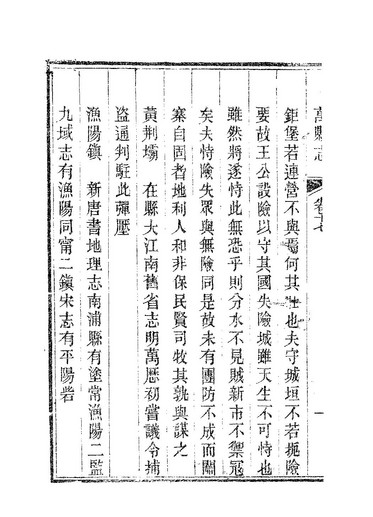 萬縣志 卷十七 一
鉅堡若連營不與焉何其壯也夫守城垣不若扼險
要故王公設險以守其國失險城雖天生不可恃也
雖然將遂恃此無恐乎則分水不見賊新市不禦寇
矣夫恃險失眾與無險同是故未有團防不成而關
寨自固者地利人和非保民賢司牧其孰與謀之
黃荆壩 在縣大江南舊省志明萬歷初嘗議令捕
盜通判駐此彈壓
漁陽鎮 新唐書地理志南浦縣有塗䇔漁陽二監
九域志有漁陽同甯二鎮宋志有平陽砦